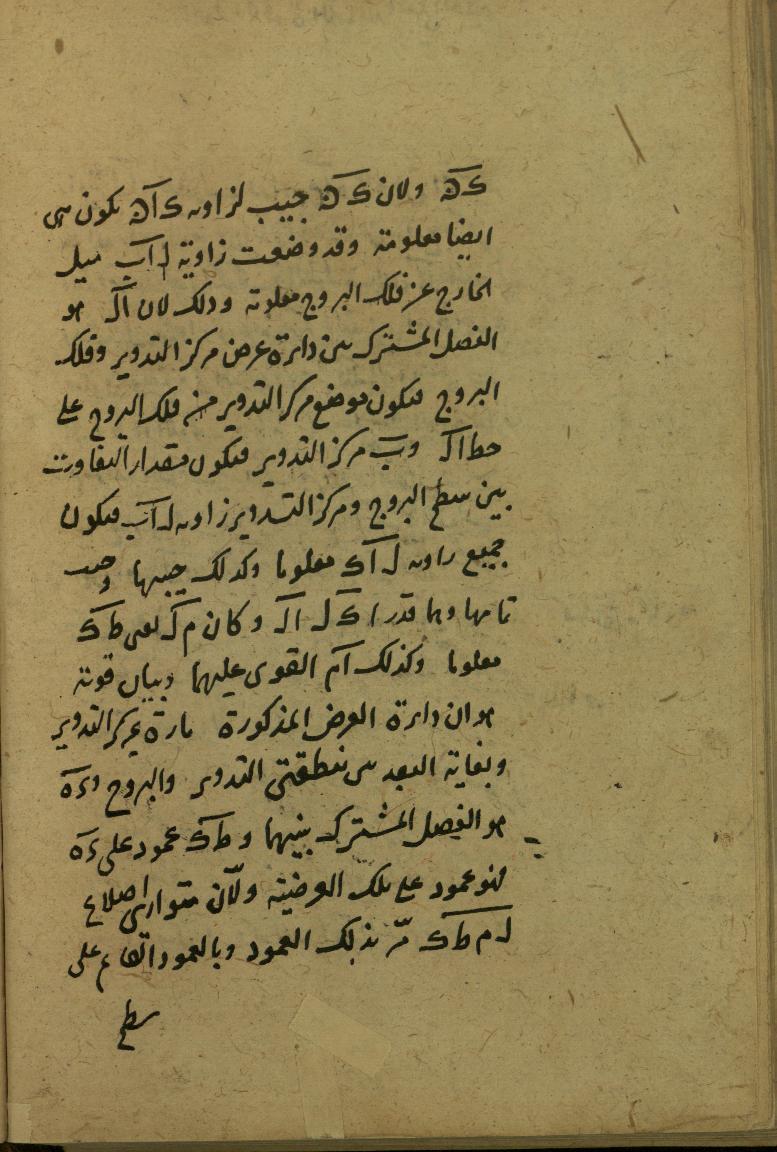 كه ولان كه جيب لزاوية كاه يكون هى
ايضا معلومة وقد وضعت زاوية لاب ميل
الخارج عن فلك البروج معلومة وذلك لان ال هو
الفصل المشترك بين دائرة عرض مركز التدوير وفلك
البروج فيكون موضع مركز التدوير من فلك البروج على
خط ال وب مركز التدوير فيكون مقدار التفاوت
بين سطح البروج ومركز التدوير زاوية لاب فيكون
جميع زاوية ل اك معلوما وكذلك جيبها وجيب
تمامها وهما قدرا ك ل ال وكان م ل اعنى ط ك
معلوما وكذلك ام القوى عليهما وبيان قوته
هو ان دائرة العرض المذكورة مارة بمركز التدوير
وبغاية البعد بين منطقتى التدوير والبروج وءه
هو الفصل المشترك بينهما و ط ك عمود على ءه
فهو عمود على تلك العرضية ولان متوازى اضلاع
ل م ط ك مر بذلك العمود وبالعمود القائم على
سطح